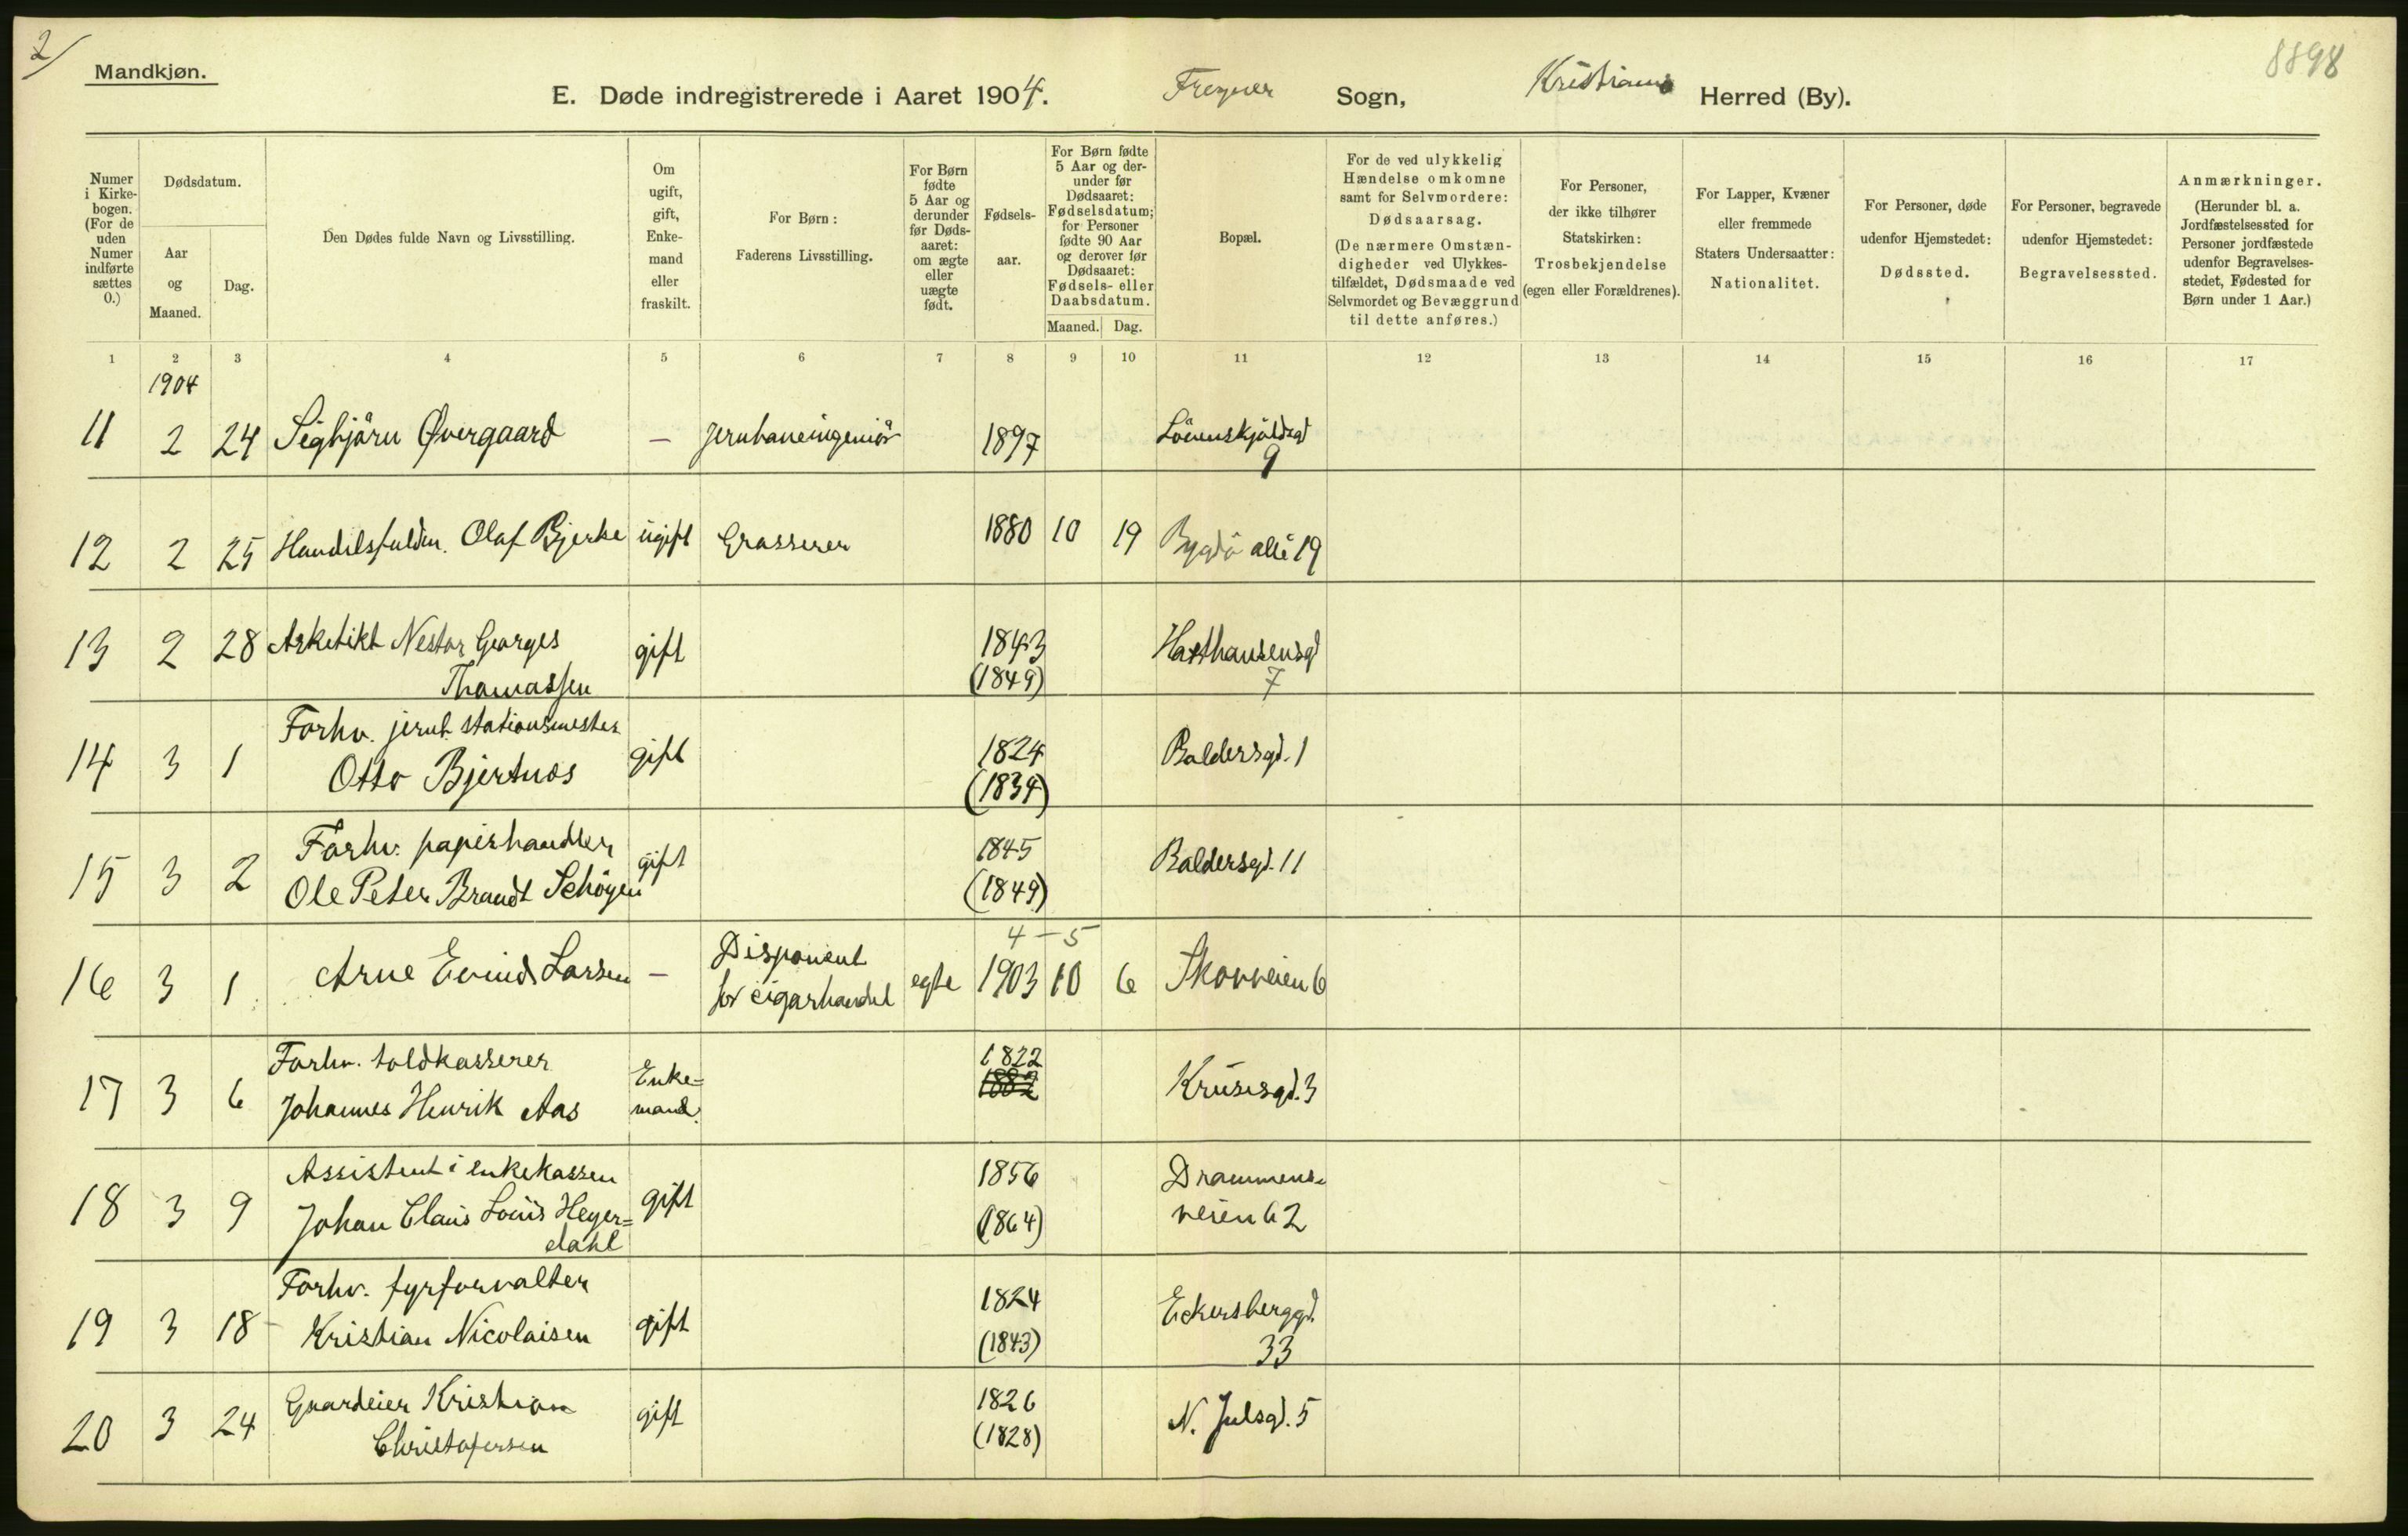 2/
Mandkjøn.
8898
E. Døde indregistrerede i Aaret 1904. Frogner Sogn, Kristiania Herred (By).
Numer i Kirke-bogen. (For de uden Numer indførte sættes 0.)
Dødsdatum.
Aar og Maaned.
Dag.
Den Dødes fulde Navn og Livsstilling.
Om ugift, gift, Enke-mand eller fraskilt.
For Børn: Faderens Livsstilling.
For Børn fødte 5 Aar og derunder før Døds-aaret: om ægte eller uægte født.
Fødsels-aar.
For Børn fødte 5 Aar og der-under før Dødsaaret: Fødselsdatum; for Personer fødte 90 Aar og derover før Dødsaaret: Fødsels- eller Daabsdatum.
Maaned. Dag.
Bopæl.
For de ved ulykkelig Hændelse omkomne samt for Selvmordere: Dødsaarsag. (De nærmere Omstæn-digheder ved Ulykkes-tilfældet, Dødsmaade ved Selvmordet og Bevæggrund til dette anføres.)
For Personer, der ikke tilhører Statskirken: Trosbekjendelse (egen eller Forældrenes).
For Lapper, Kvæner eller fremmede Staters Undersaatter: Nationalitet.
For Personer, døde udenfor Hjemstedet: Dødssted.
For Personer, begravede udenfor Hjemstedet: Begravelsessted.
Anmærkninger. (Herunder bl. a. Jordfæstelsessted for Personer jordfæstede udenfor Begravelses-stedet, Fødested for Børn under 1 Aar.)
1 2 3 4 5 6 7 8 9 10 11 12 13 14 15 16 17
1904
11 2 24 Sigbjörn Øvergaard — Jernbaneingeniör 1897 Löwenskjoldsgd
9
12 2 25 Handelsfuldm. Olaf Bjerke ugift Grosserer 1880 10 19 Bygdö allé 19
13 2 28 Arkitekt Nestor Georges gift 1843 Haxthausensgd
Thomassen (1849) 7
Forhv. jernb. stationsmester
14 3 1 Otto Bjertnæs gift 1824 Baldersgd. 1
(1839)
Forhv. papirhandler 1845
15 3 2 Ole Peter Brandt Schöyen gift (1849) Baldersgd. 11
4 – 5
16 3 1 Arne Eivind Larsen — Disponent
for cigarhandel egte 1903 10 6 Skovveien 6
Forhv. toldkasserer Enke= 1822
17 3 6 Johannes Henrik Aas mand. 1882 Krusesgd. 3
Assistent i enkekassen 1856 Drammens-
18 3 9 Johan Claus Louis Heyer= gift (1864) veien 62
dahl
Forhv. fyrforvalter 1824 Eckersberggd.
19 3 18 Kristian Nicolaisen gift (1843) 33
Gaardeier Kristian 1826
20 3 24 Christofersen gift (1828) N. Julsgd. 5